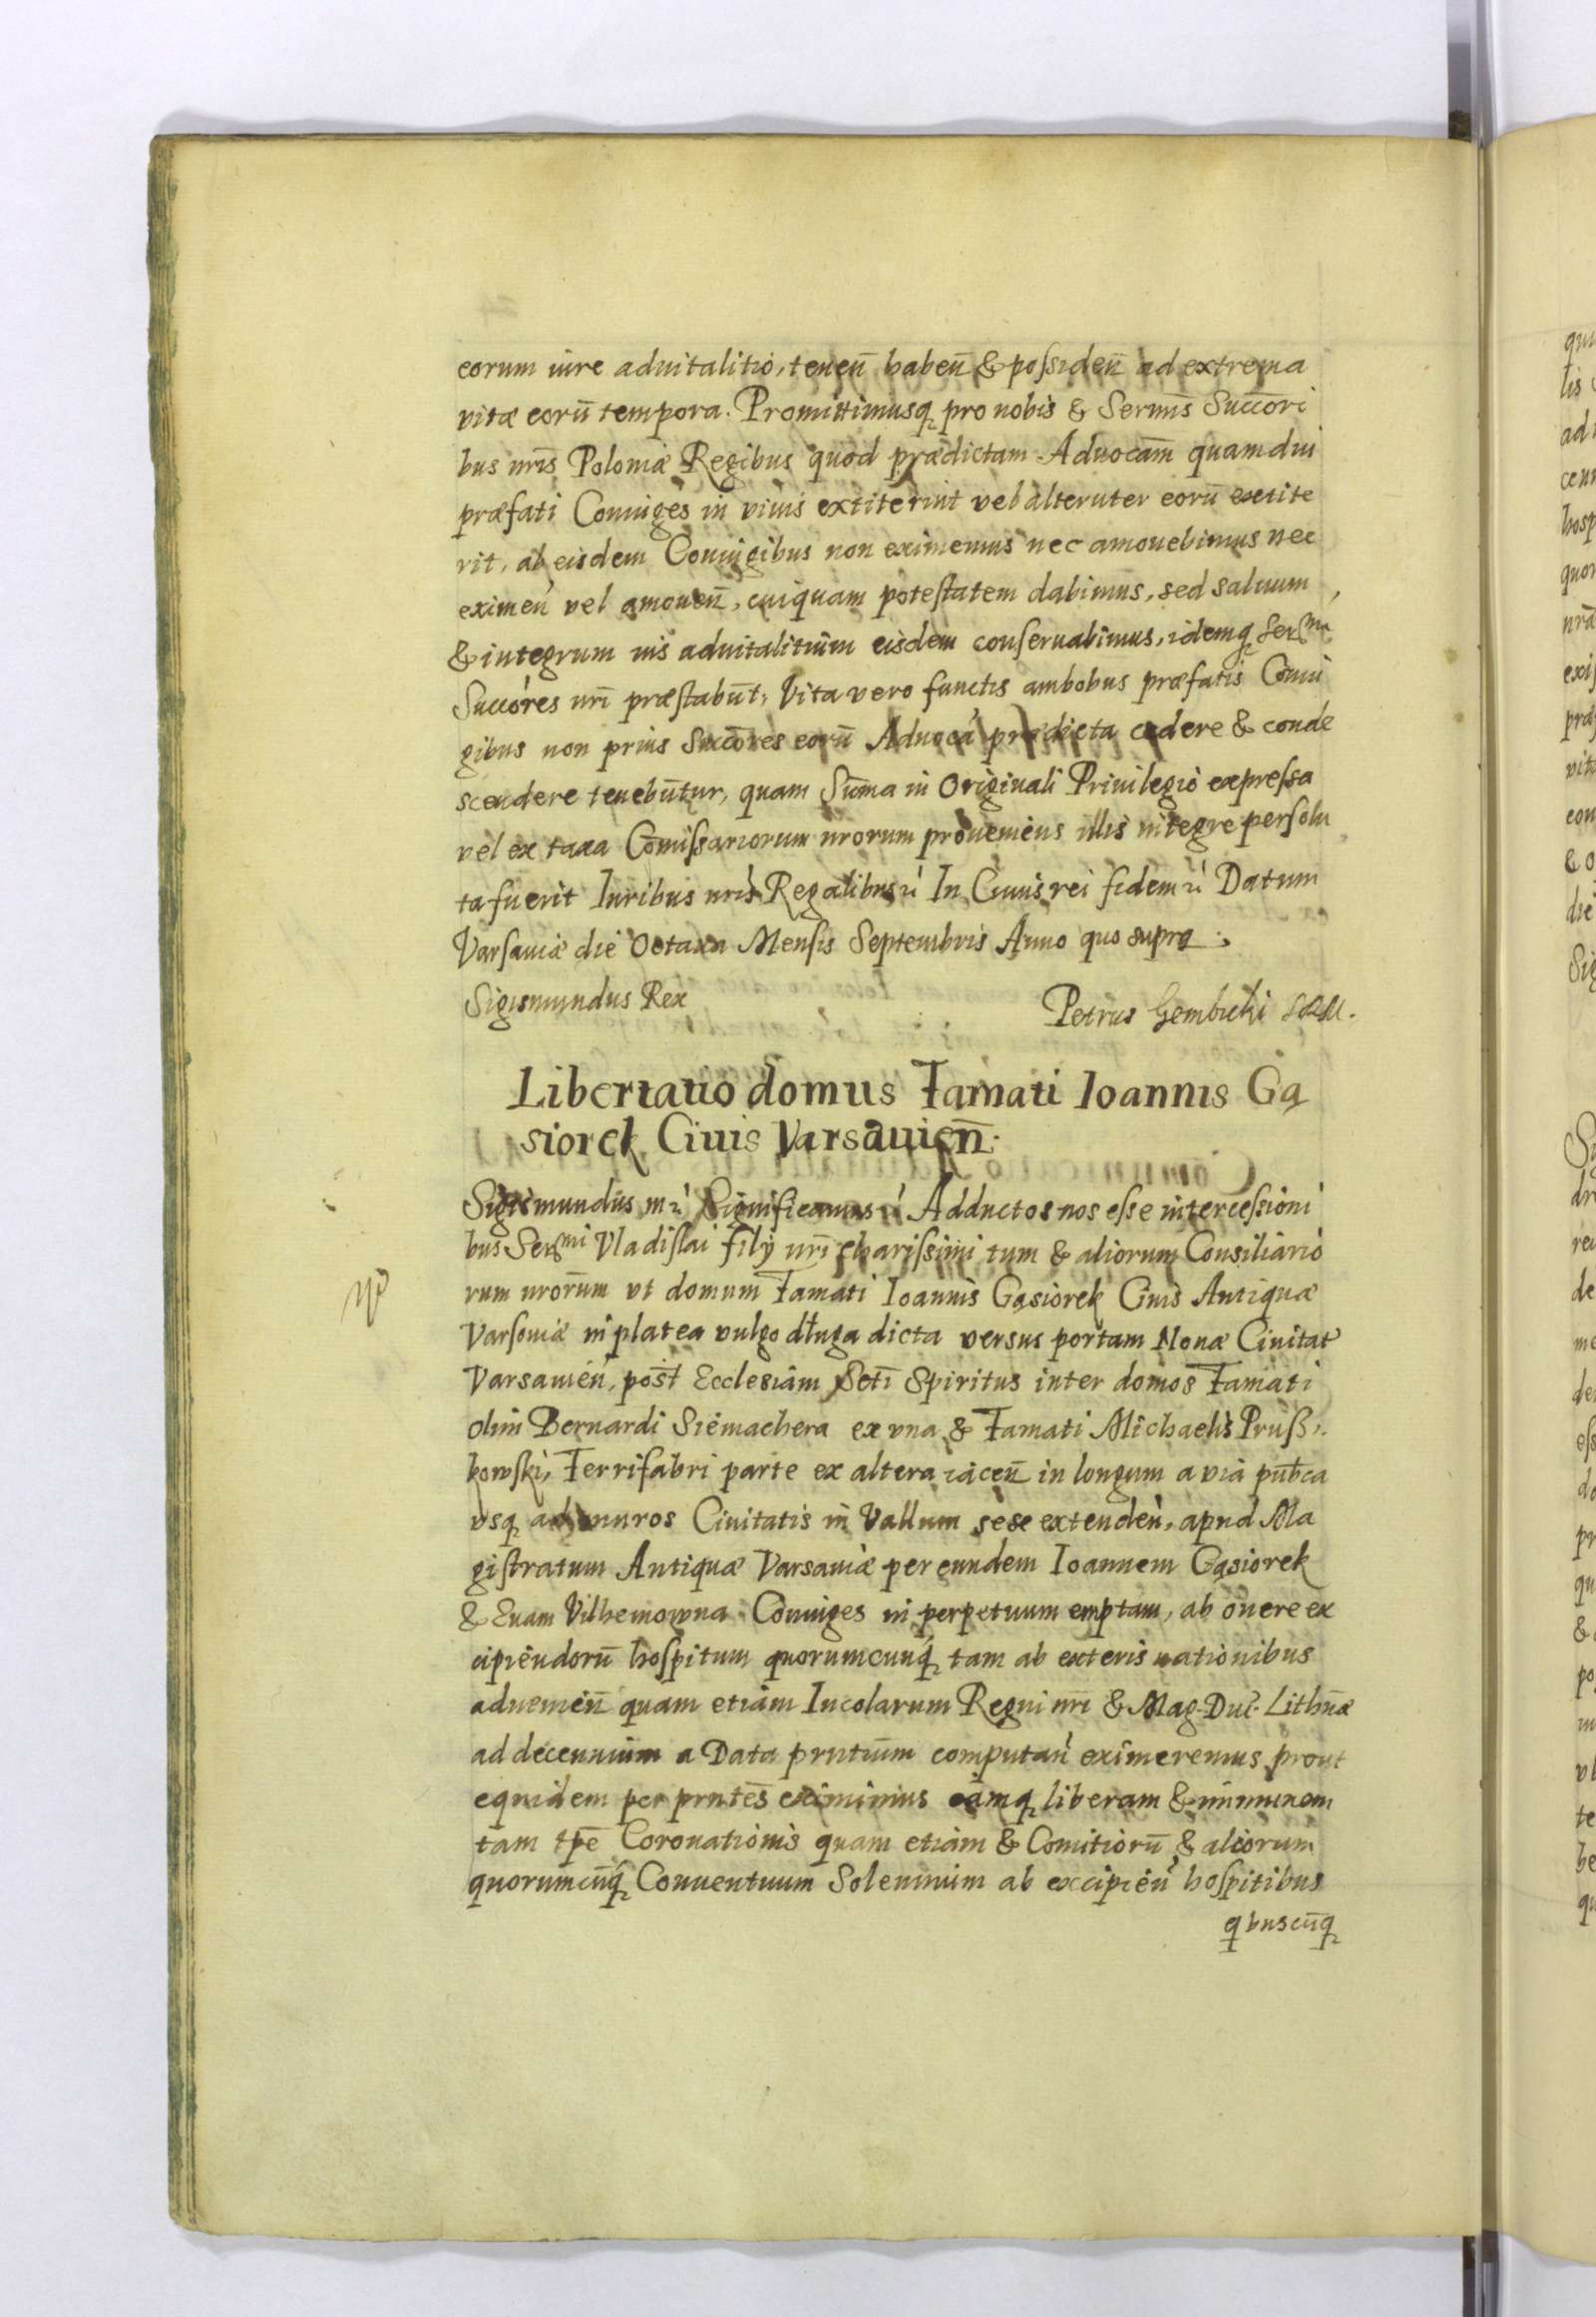 eorum iure aduitalitio, teneñ habeñ & possideñ ad extrema
vitæ eorū tempora. Promittimusq₃ pro nobis & Sermīs Succori
bus nr̄is Poloniæ Regibus quod prædictam Aduocam̄ quamdiu
præfati Coniuges in viuis extiterint vel alteruter eorū extite
rit, ab eisdem Coniugibus non eximemus nec amouebimus nec
eximeń vel amoueñ, cuiquam potestatem dabimus, sed saluum
& integrum ius aduitalitium eisdem conseruabimus, idemq₃ Sermi
Succores nr̄i præstabūt, Vita vero functis ambobus præfatis Coniu
gibus non prius Succores eorū Aduoca prædicta cedere & conde
scendere tenebūtur, quam Sūma in Originali Priuilegio expressa
vel ex taxa Comissariorum nrorum proueniens illis integre persolu
ta fuerit Iuribus nris Regalibus ꝛć In Cuius rei fidem ꝛć Datum
Varsauiæ die Octaua Mensis Septembris Anno quo supra.
Sigismundus Rex
Petrus Gembicki
Libertatio domus Famati Ioannis Gą
siorek Ciuis Varsauieñ.
Sigismundus ꝛć Significamus ꝛć Adductos nos esse intercessioni
bus Sermi Vladislai filÿ nr̄i charissimi tum & aliorum Consiliario
rum nrorum vt domum Famati Ioannis Gąsiorek Ciuis Antiquæ
Varsouiæ in platea vulgo długa dicta versus portam Nouæ Ciuitat
Varsauień, post Ecclesiam Scti Spiritus inter domos Famati
olim Bernardi Siemachera ex vna & Famati Michaelis Pruß
kowski, Ferrifabri parte ex altera iaceñ in longum a via pub̄ca
vsq₃ ad muros Ciuitatis in Vallum sese extendeń, apud Ma
gistratum Antiquæ Varsauiæ per eundem Ioannem Gąsiorek
& Euam Vilhemowna Coniuges in perpetuum emptam, ab onere ex
cipiendorū hospitum quorumcunq₃ tam ab exteris nationibus
adueniēn quam etiam Incolarum Regni nri & Mag. Duc. Lithūæ
ad decennium a Data prntium computań eximeremus prout
equidem per prntes eximimus eamq₃ liberam & immunem
tam tpē Coronationis quam etiam & Comitiorū & aliorum
quorumcūq₃ Conuentuum Solennium ab excipień hospitibus
qbuscūq₃